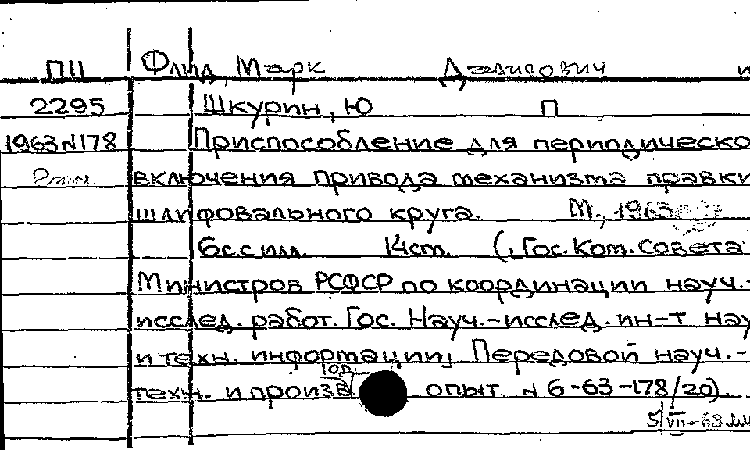 ПП Флид, Марк Давидович и
2295 Шкурин, Ю П
1963 N178 Приспособление для периодическо
включения привода механизма правки
шлифовального круга. М., 1963
6с. с илл. 14cm. (, Гос. Ком. Совета
Министров РСФСР по координации науч.-
исслед. работ. Гос. Науч.-исслед. ин-т нау
и техн. информации, Передовой науч.-
техн. и произв опыт N 6-63-178/20).
5/VII-63